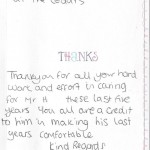 at the Cedars
THANKS
Thankyou for all your hard
work and effort in caring
for Mr H these last five
years you all are a credit
to him in making his last
years comfortable
Kind Regards